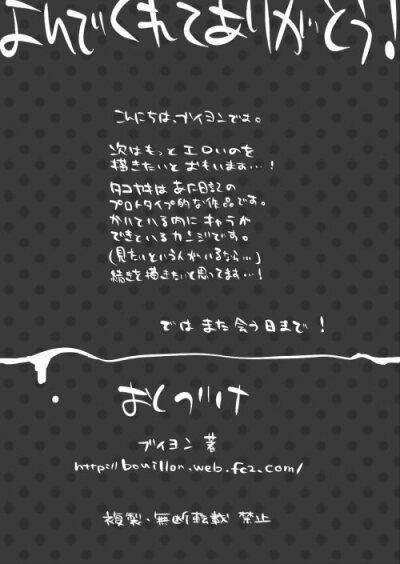 よんでくれてありがとう!
こんにちは、ブイヨンです。
次はもっとエロいのを
描きたいとおもいます…!
タコヤキはあな日記の
プロトタイプ的な作品です。
かいている内にキャラが
できているカンジです。
(見たいという人がいるなら…)
続きを描きたいと思ってます…!
では また 会う日まで!
おしつけ
ブイヨン 著
http://bouillon.web.fc2.com/
複製・無断転載 禁止